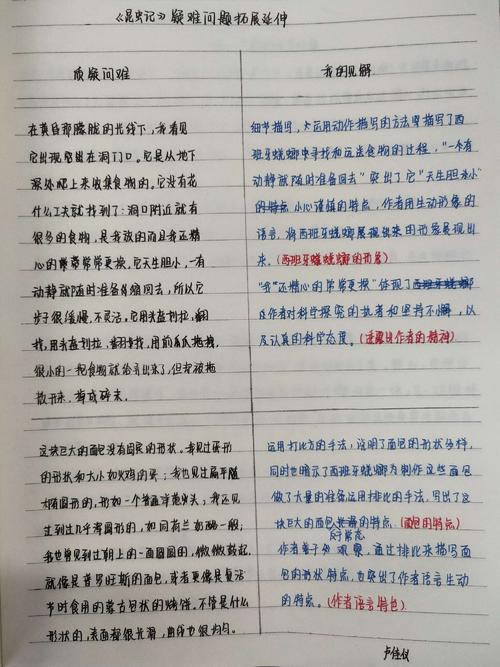 《昆虫记》疑难问题拓展延伸
质疑问难
我的见解
在黄昏那朦胧的光线下，我看见
它出现在洞门口。它是从地下
深处爬上来收集食物的。它没有花
什么工夫就找到了：洞口附近就有
很多的食物，是我放的而且我还精
心的常常更换。它天生胆小，一有
动静就随时准备缩回去，所以它
步子很缓慢，不灵活。它用头盔刮扯，翻
找，用前爪拖拽，
很小的一抱食物就给弄出来了，但却被拖
散开来，掉成碎末。
细节描写，运用动作描写的方法写了西
班牙蜣螂寻找和运送食物的过程，“一有
动静就随时准备回去”突出了它“天生胆小”
小心谨慎的特点，作者用生动形象的
语言，将西班牙蜣螂展现出来的形象展现出
来。（西班牙蜣螂的形象）
“我”还精心的常常更换”体现了
作者对科学探究的执着和坚持不懈，以
及认真的科学态度。（透露出作者的精神）
这块巨大的面包没有固定的形状。我见过蛋形
的形状和大小如火鸡的蛋；我也见过扁平
椭圆形的，形如一个普通洋葱头；我还见
过到过几乎浑圆形的，如同荷兰奶酪一般；
我也曾见到过朝上的一面圆圆的，微微鼓起，
就像是普罗旺斯的面包，或者更像是复活
节时食用的蒙古包状的烤饼。不管是什么
形状的，表面都很光滑，曲线也很均匀。
运用打比方的手法，说明了面包的形状多样，
同时也暗示了西班牙蜣螂为制作这些面包
做了大量的准备运用排比的手法，写出了这
块巨大的面包的特点（面包的特点）
作者善于观察，通过排比来描写面
包的形状特点，也突出了作者语言生动
的特点。（作者语言特色）
卢佳仪